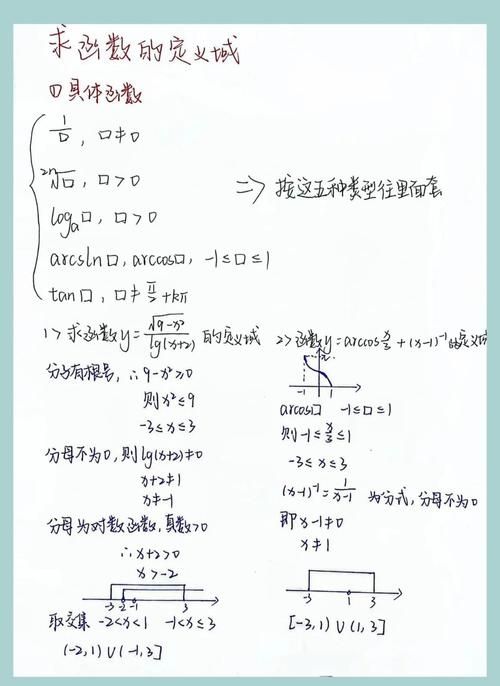 求函数的定义域
①具体函数
1/□, □≠0
2n√□, □>0
logₐ□, □>0
=> 按这五种类型往里面套
arcsin□, arccos□, -1≤□≤1
tan□, □≠π/2+kπ
1> 求函数y=√(9-x²)/lg(x+2)的定义域
分子有根号, ∴9-x²>0
则x²≤9
-3≤x≤3
分母不为0, 则lg(x+2)≠0
x+2≠1
x≠-1
分母为对数函数, 真数>0
∴x+2>0
x>-2
-3 -2 -1 3
取交集 -2<x<1 -1<x≤3
(-2,1)∪(-1,3]
2>函数y=arccos x/3+(x-1)⁻¹的定义域
π
-1 1
arcos□ -1≤□≤1
则-1≤x/3≤1
-3≤x≤3
(x-1)⁻¹=1/(x-1) 为分式, 分母不为0
即x-1≠0
x≠1
-3 1 3
[-3,1)∪(1,3]